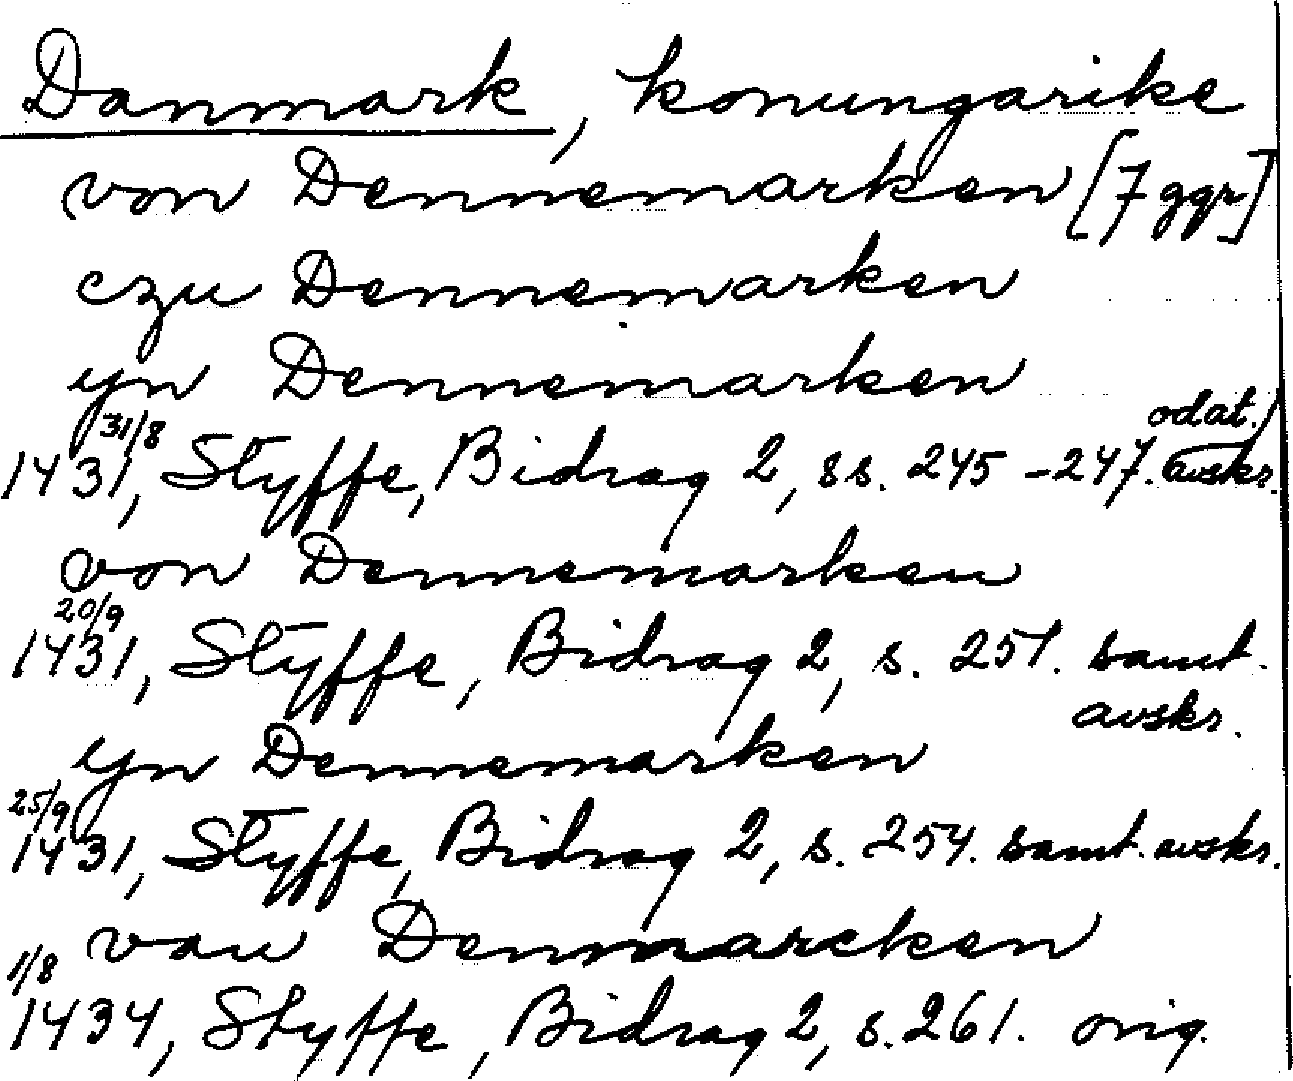 Danmark, konungarike
von Dennemarken [7 ggr]
czu Dennemarken
yn Dennemarken
31/8 odat.
1431, Styffe, Bidrag 2, ss. 245-247. avskr.
von Dennemarken
20/9
1431, Styffe, Bidrag 2, s. 251. samt.
avskr.
yn Dennemarken
25/9
1431, Styffe, Bidrag 2, s. 254. samt. avskr.
van Denmarcken
1/8
1434, Styffe, Bidrag 2, s. 261. orig.